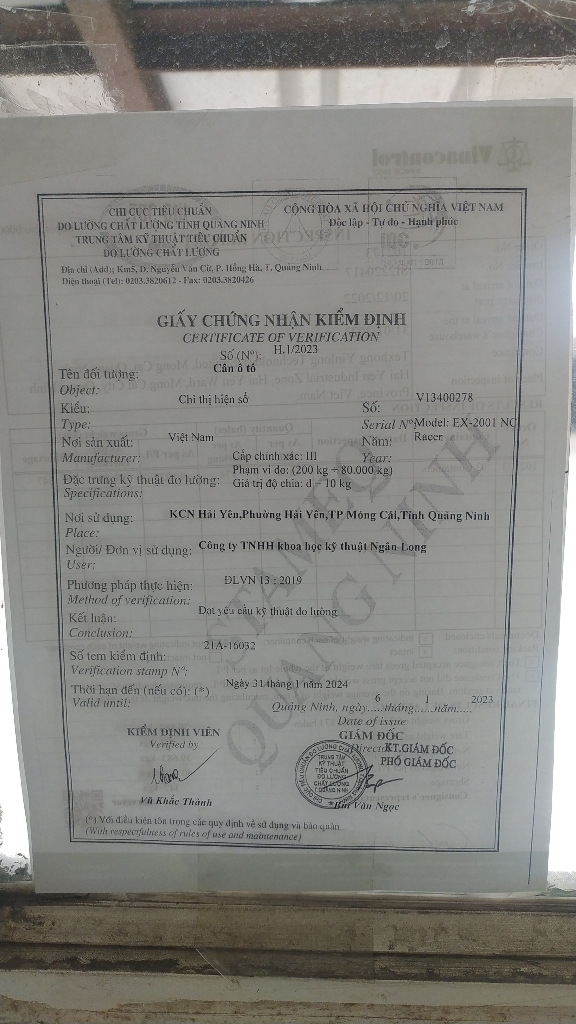 Vinacontrol
CHI CỤC TIÊU CHUẨN
ĐO LƯỜNG CHẤT LƯỢNG TỈNH QUẢNG NINH
TRUNG TÂM KỸ THUẬT TIÊU CHUẨN
ĐO LƯỜNG CHẤT LƯỢNG
CỘNG HÒA XÃ HỘI CHỦ NGHĨA VIỆT NAM
Độc lập - Tự do - Hạnh phúc
Địa chỉ (Add): Km5, Đ. Nguyễn Văn Cừ, P. Hồng Hà, T. Quảng Ninh
Điện thoại (Tel): 0203.3820612 - Fax: 0203.3820426
GIẤY CHỨNG NHẬN KIỂM ĐỊNH
CERTIFICATE OF VERIFICATION
Số (Nº): H.1/2023
Tên đối tượng: Cân ô tô
Object:
Kiểu: Chỉ thị hiện số Số: V13400278
Type: Serial Nº Model: EX-2001 NO
Nơi sản xuất: Việt Nam Năm: Racer
Manufacturer: Year:
Cấp chính xác: III
Phạm vi đo: (200 kg ÷ 80.000 kg)
Đặc trưng kỹ thuật đo lường: Giá trị độ chia: d = 10 kg
Specifications:
Nơi sử dụng: KCN Hải Yên,Phường Hải Yên,TP Móng Cái,Tỉnh Quảng Ninh
Place:
Người/ Đơn vị sử dụng: Công ty TNHH khoa học kỹ thuật Ngân Long
User:
Phương pháp thực hiện: ĐLVN 13 : 2019
Method of verification:
Kết luận: Đạt yêu cầu kỹ thuật đo lường
Conclusion:
Số tem kiểm định: 21A-16032
Verification stamp Nº:
Thời hạn đến (nếu có): (*) Ngày 31 tháng 1 năm 2024
Valid until:
Quảng Ninh, ngày 6 tháng 1 năm 2023
Date of issue
KIỂM ĐỊNH VIÊN
Verified by
GIÁM ĐỐC
Director
KT.GIÁM ĐỐC
PHÓ GIÁM ĐỐC
TRUNG TÂM
KỸ THUẬT
TIÊU CHUẨN
ĐO LƯỜNG
CHẤT LƯỢNG
T.QUẢNG NINH
Vũ Khắc Thành
Bùi Văn Ngọc
(*) Với điều kiện tôn trọng các quy định về sử dụng và bảo quản.
(With respectfulness of rules of use and maintenance)
STAMEQ
QUANG NINH